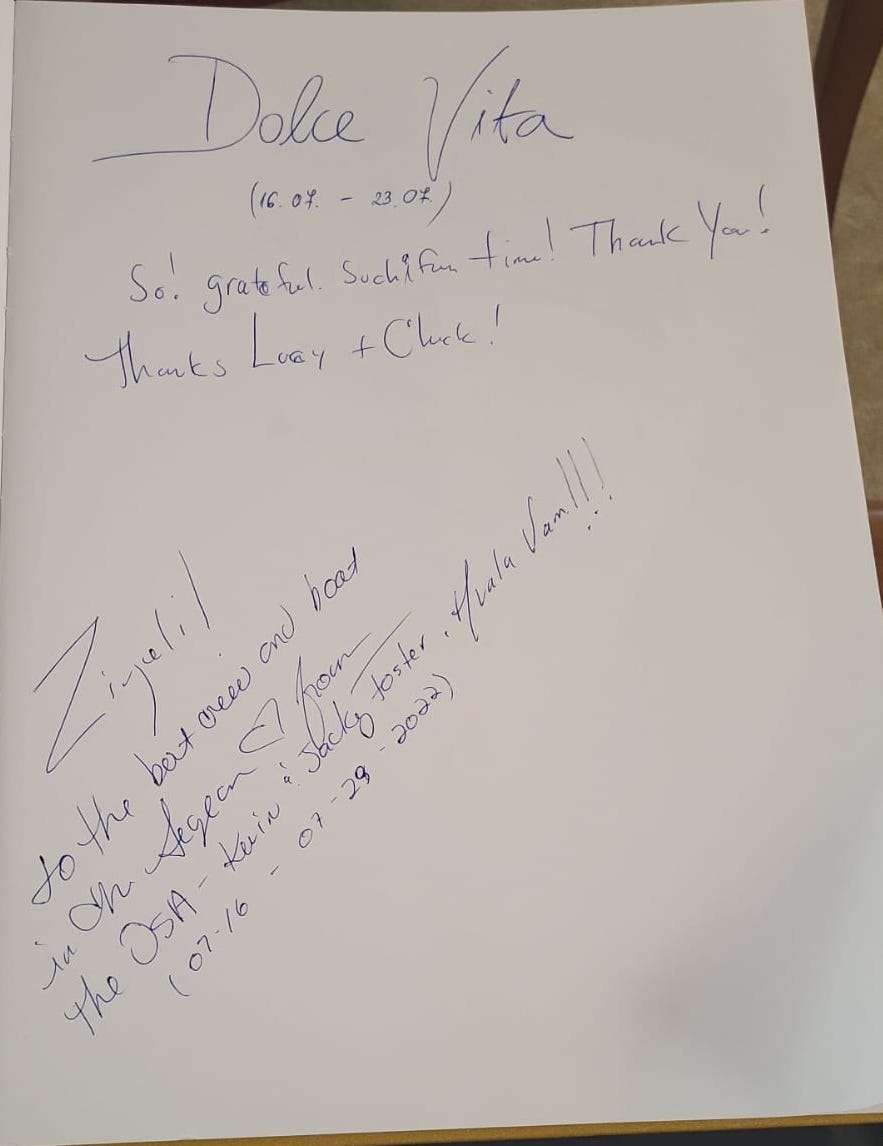 Dolce Vita
(16.07. - 23.07.)
So! grateful. Such a fun time! Thank You!
Thanks Lucy + Chuck!
Zivjeli!
to the best crew and boat
in the Aegean from
the USA - Kevin & Jacky Foster. Hvala Vam!!!
(07-16 - 07-29-2022)